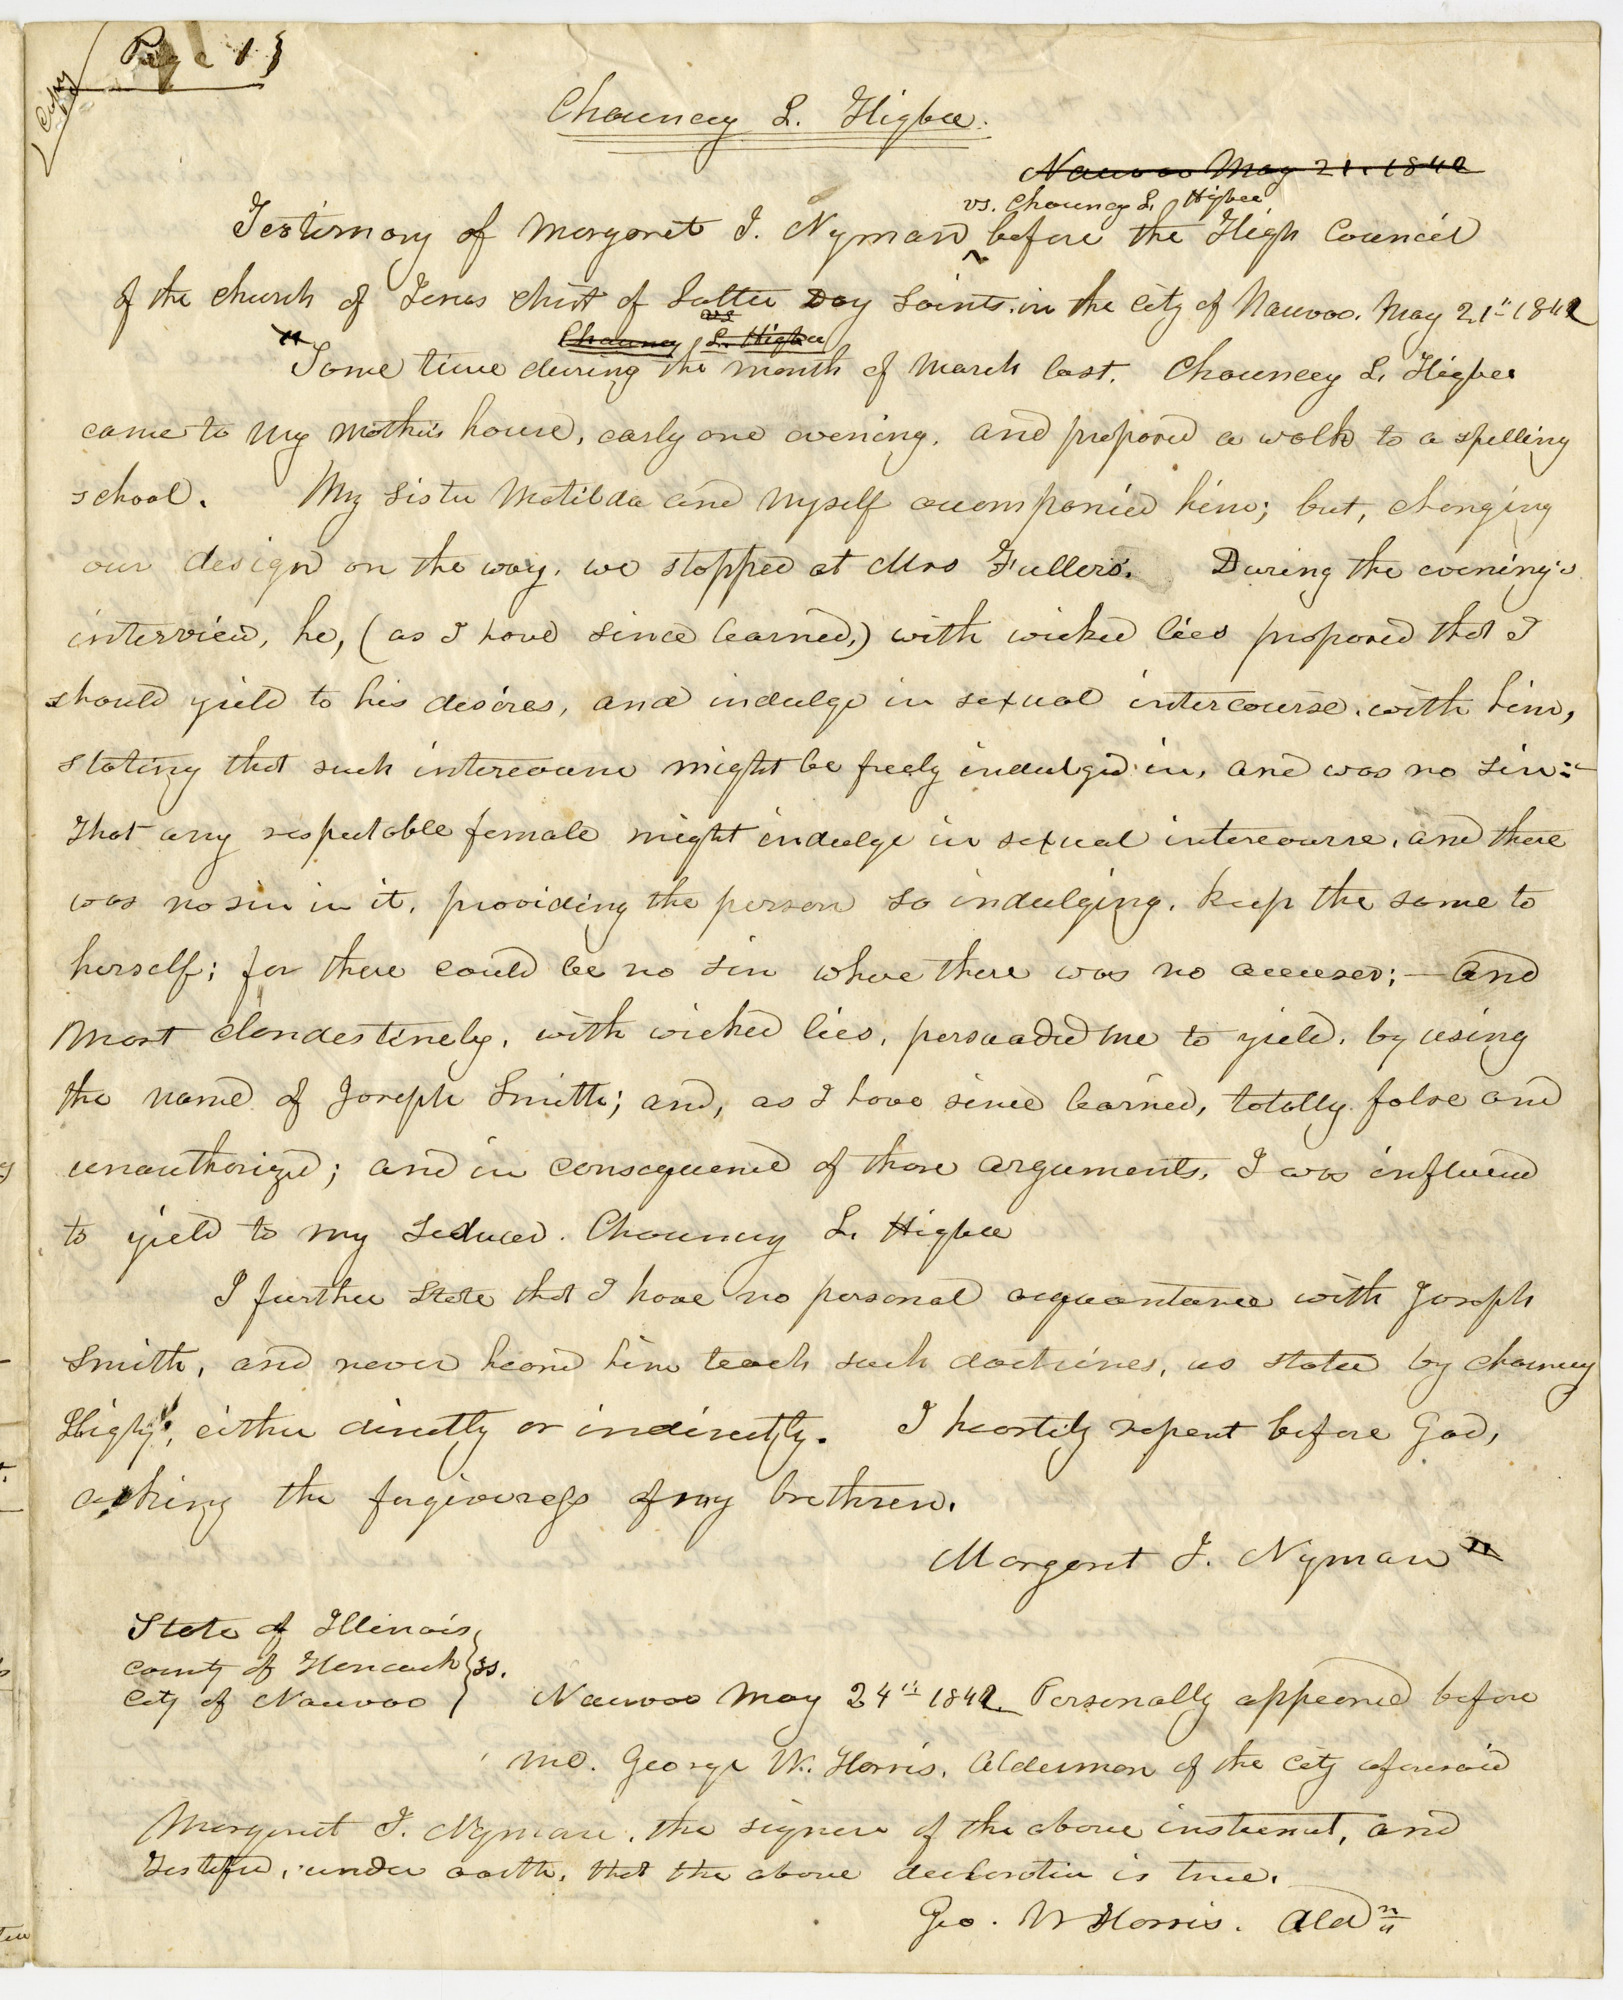 Copy
Page 1}
Chauncey L. Higbee.
Nauvoo May 21. 1842
vs. Chauncy L. Higbee
Testimony of Margaret J. Nyman ^ before the High Council
of the church of Jesus Christ of Latter Day Saints. in the City of Nauvoo. May 21st 1842
vs
Chauncy L. Higbee
"Some time during the month of March last. Chauncey L. Higbee
came to my mother's house, early one evening, and proposed a walk to a spelling
school. My sister Matilda and myself accompanied him; but, changing
our design on the way, we stopped at Mrs Fuller's. During the evening's
interview, he, (as I have since learned,) with wicked lies proposed that I
should yield to his desires, and indulge in sexual intercourse with him,
stating that such intercourse might be freely indulged in, and was no sin:-
That any respectable female might indulge in sexual intercourse, and there
was no sin in it, providing the person so indulging, keep the same to
herself; for there could be no sin where there was no accuser;— and
most clandestinely, with wicked lies, persuaded me to yield, by using
the name of Joseph Smith; and, as I have since learned, totally false and
unauthorized; and in consequence of those arguments, I was influenced
to yield to my seducer. Chauncy L. Higbee
I further state that I have no personal acquaintance with Joseph
Smith, and never heard him teach such doctrines, as stated by Chauncy
Higby, either directly or indirectly. I heartily repent before God,
asking the forgiveness of my brethren.
Margaret J. Nyman"
State of Illinois
County of Hancock } ss.
City of Nauvoo } Nauvoo May 24th 1842. Personally appeared before
me. George W. Harris, Alderman of the City aforesaid
Margaret J. Nyman, the signer of the above instrument, and
testified, under oath, that the above declaration is true.
Geo. W Harris. Aldn